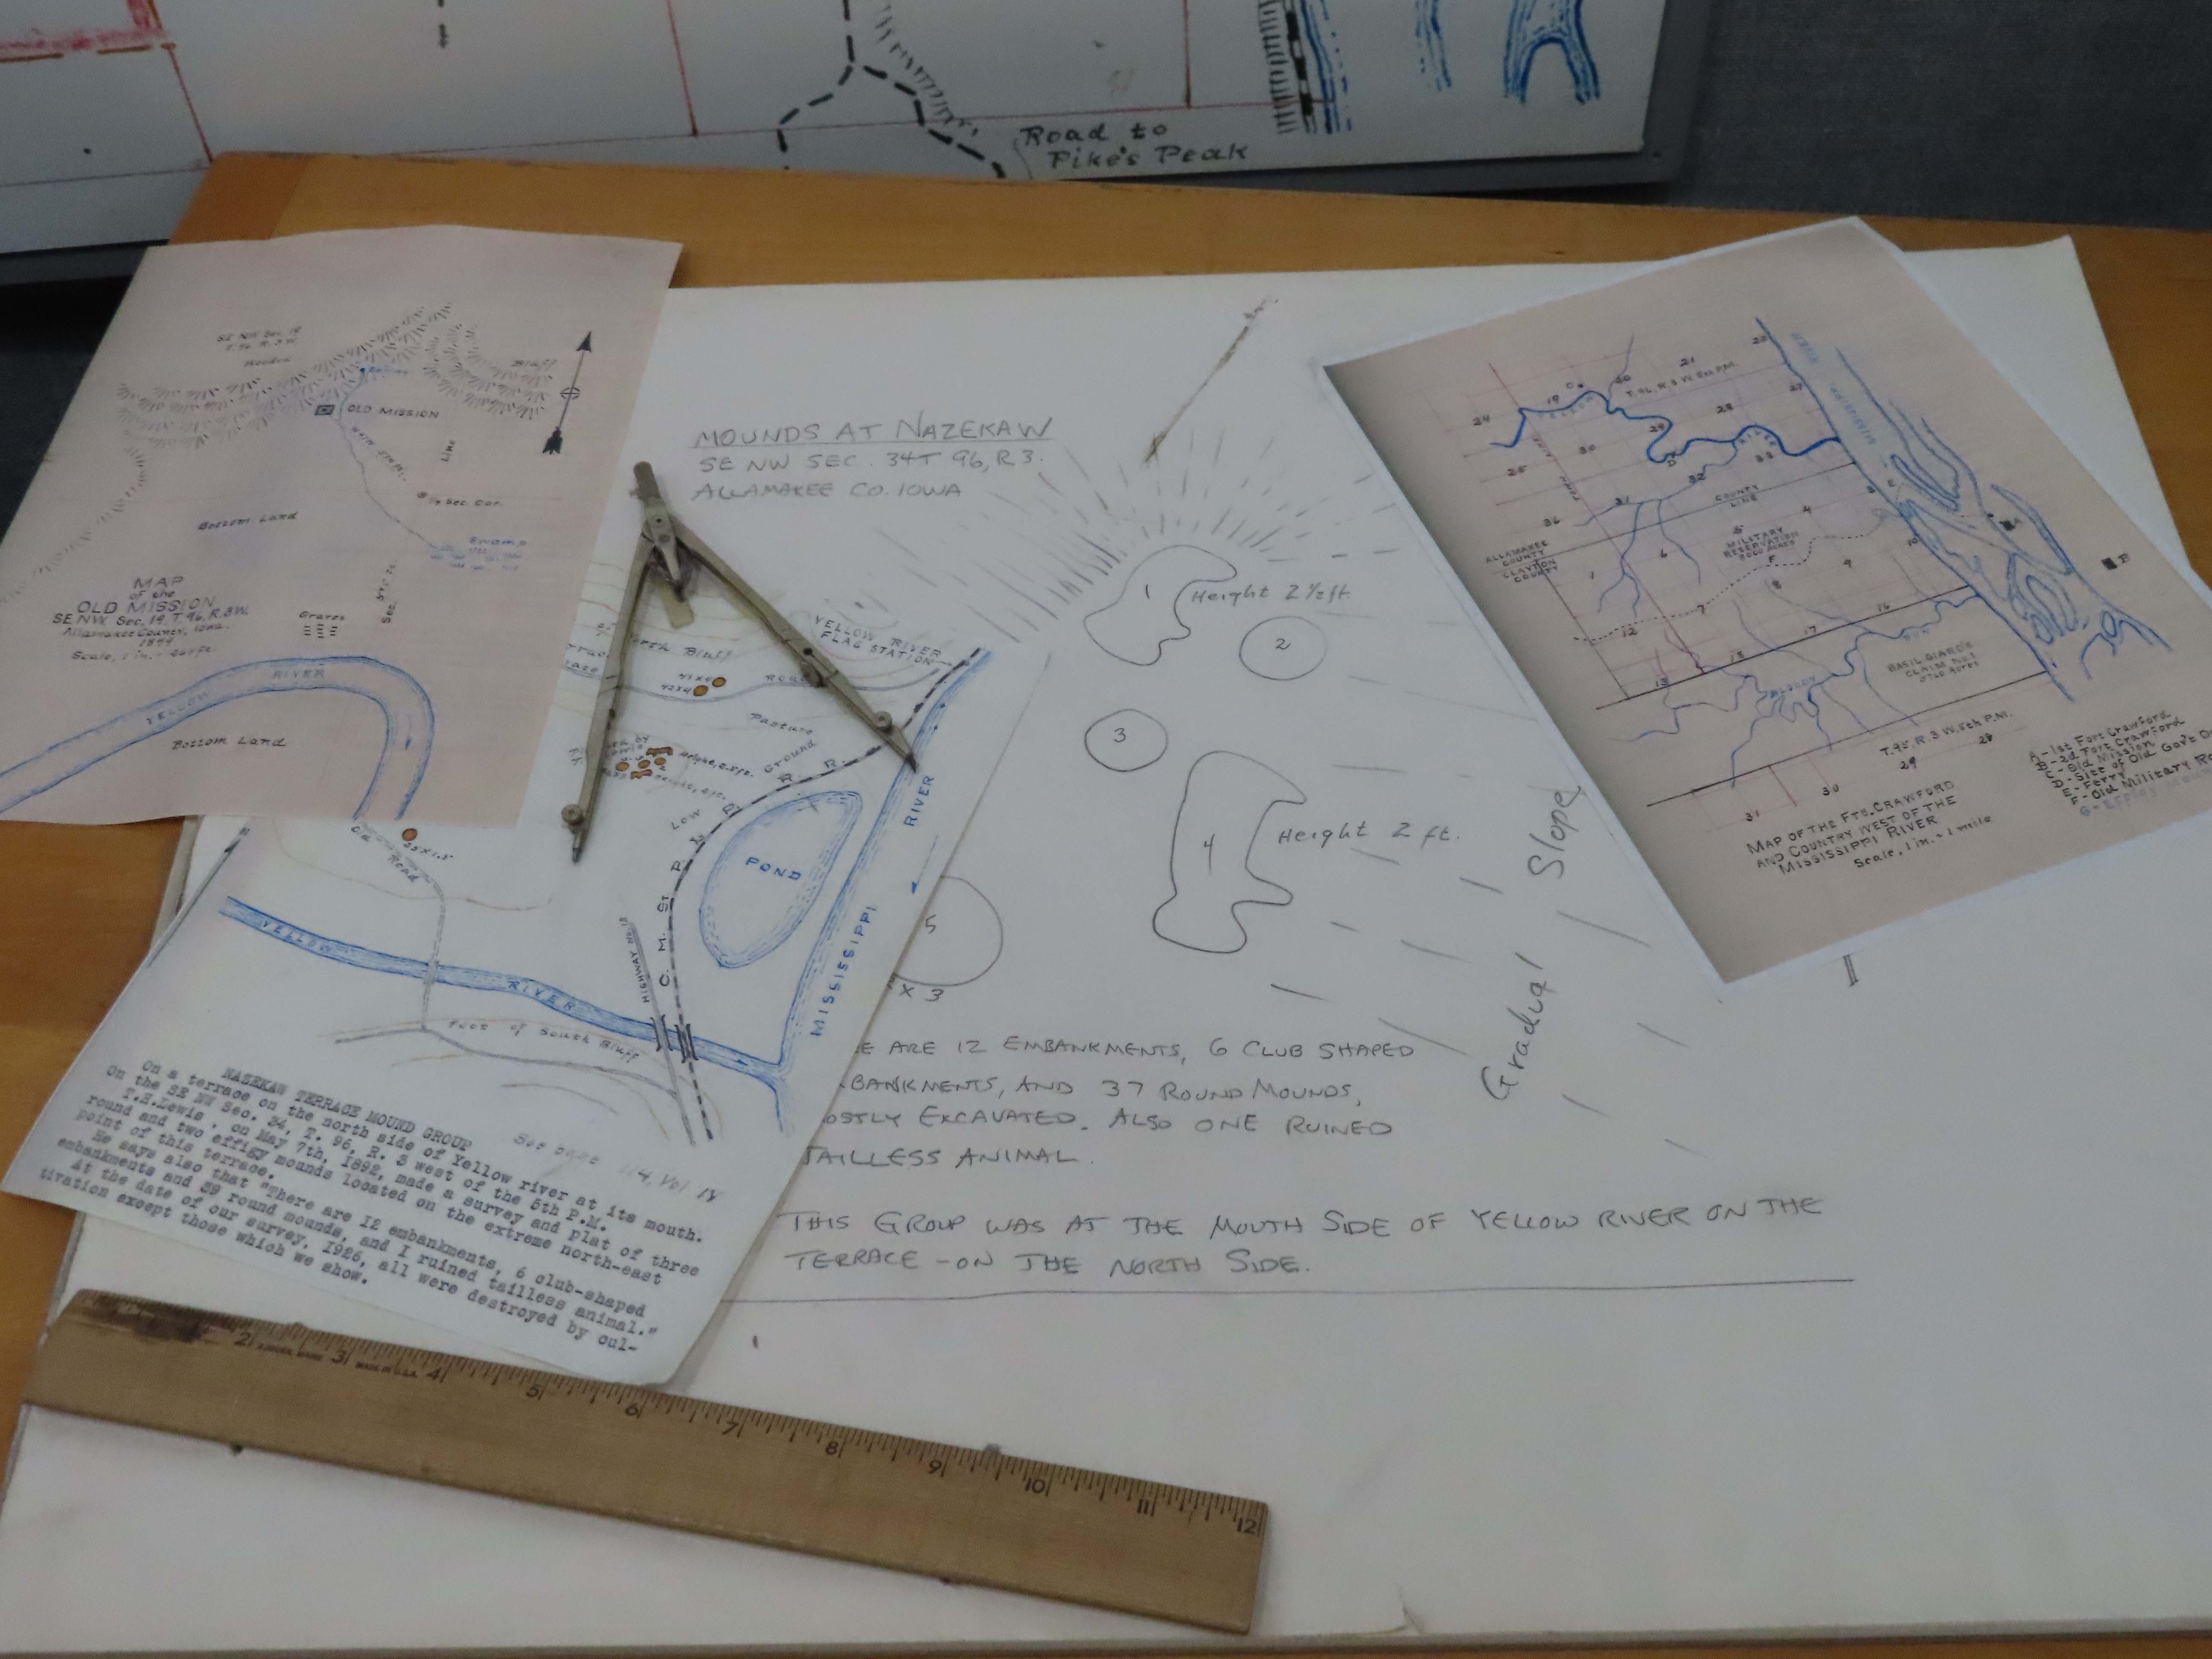 Road to
Pike's Peak
SE NW Sec. 19
T. 96 R. 3 W.
Wooded
Bluff
OLD MISSION
Line
1/4 Sec. Cor.
Bottom Land
Swamp
MAP
of the
OLD MISSION
SE NW. Sec. 19, T. 96, R. 3 W.
Allamakee County, Iowa.
Graves
Sec.
YELLOW RIVER
Bottom Land
MOUNDS AT NAZEKAW
SE NW SEC. 34 T 96, R3.
ALLAMAKEE CO. IOWA
1
Height 2 1/2 ft.
2
3
4
Height 2 ft.
5
X 3
Gradual Slope
E ARE 12 EMBANKMENTS, 6 CLUB SHAPED
BANKMENTS, AND 37 ROUND MOUNDS,
OSTLY EXCAVATED. ALSO ONE RUINED
TAILLESS ANIMAL.
THIS GROUP WAS AT THE MOUTH SIDE OF YELLOW RIVER ON THE
TERRACE - ON THE NORTH SIDE.
YELLOW RIVER
FLAG STATION
orth Bluff
Road
42X4
Pasture
Ground
Low
R. R.
C. M. ST. P.
POND
MISSISSIPPI RIVER
25X1.5
Old Road
YELLOW RIVER
HIGHWAY No. 13
Foot of South Bluff
NAZEKAW TERRACE MOUND GROUP
On a terrace on the north side of Yellow river at its mouth.
On the SE NW Sec. 34, T. 96, R. 3 west of the 5th P.M.
T.H.Lewis, on May 7th, 1892, made a survey and plat of three
round and two effigy mounds located on the extreme north-east
point of this terrace.
He says also that "There are 12 embankments, 6 club-shaped
embankments and 39 round mounds, and 1 ruined tailless animal."
At the date of our survey, 1926, all were destroyed by cul-
tivation except those which we show.
114, Vol IV
T. 96, R. 3 W. 5th P.M.
20
21
19
24
28
27
29
30
25
33
32
31
36
YELLOW RIVER
MISSISSIPPI RIVER
COUNTY
LINE
ALLAMAKEE
COUNTY
CLAYTON
COUNTY
MILITARY
RESERVATION
4
5
6
1
F
8
9
10
7
12
16
17
13
BASIL GIARD'S
CLAIM No. 1
BLOODY RUN
A
B
C
D
E
T. 95, R. 3 W. 5th P.M.
28
29
30
31
MAP OF THE FTS. CRAWFORD
AND COUNTRY WEST OF THE
MISSISSIPPI RIVER
Scale, 1 in. = 1 mile
A - 1st Fort Crawford
B - 2d Fort Crawford
C - Old Mission
D - Site of Old Gov't
E - Ferry
F - Old Military Ro
G - Effigy
2 3 4 5 6 7 8 9 10 11 12